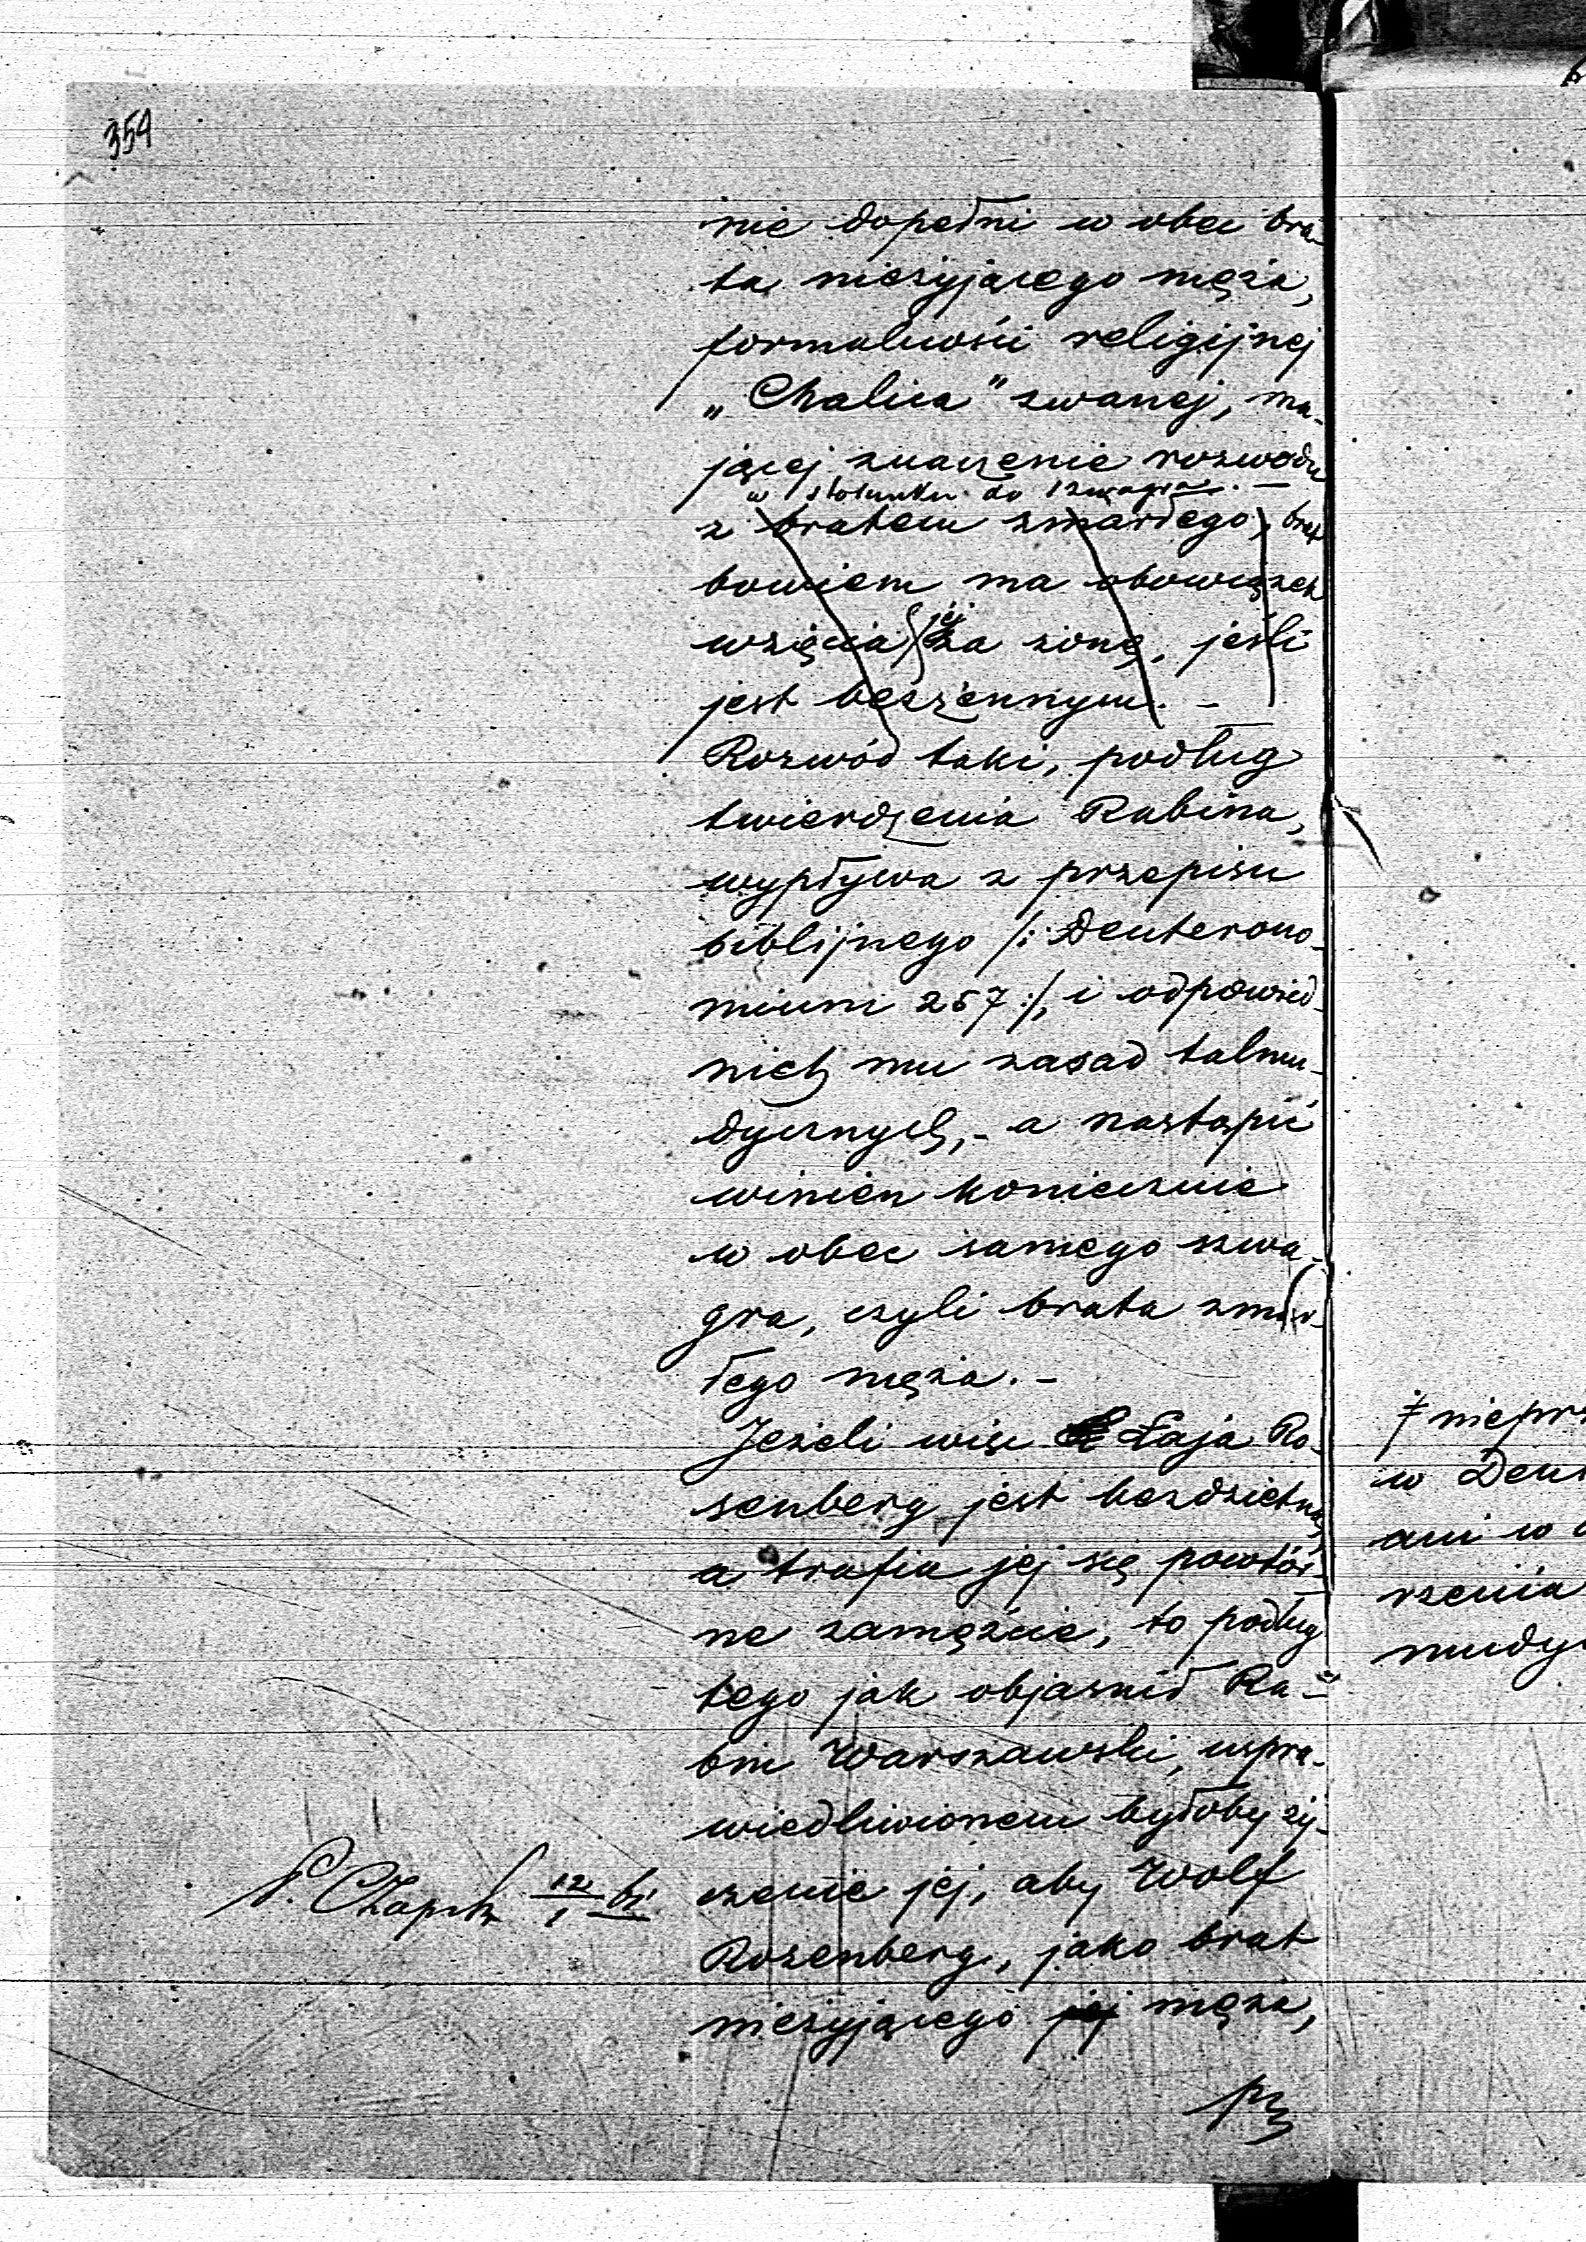 354
nie dopełni w obec bra-
ta nieżyjącego męża,
formalności religijnej
„Chalica" zwanej, ma-
jącej znaczenie rozwodu
w stosunku do szwagra. —
z bratem zmarłego, brat
bowiem ma obowiązek
wzięcia jej za żonę, jeśli
jest bezżennym. -
Rozwód taki, podług
twierdzenia Rabina,
wypływa z przepisu
biblijnego /: Deuterono-
mium 257 :/, i odpowied-
nich mu zasad talmu-
dycznych, - a nastąpić
winien koniecznie
w obec samego szwa-
gra, czyli brata zmar-
łego męża. -
Jeżeli więc Łaja Ro-
senberg jest bezdzietną,
a trafia jej się powtór-
ne zamęźcie, to podług
tego jak objaśnił Ra-
bin Warszawski, uspra-
wiedliwionem byłoby ży-
czenie jej, aby Wolf
Rozenberg, jako brat
nieżyjącego jej męża,
12/1
‡ niepr
w Deu
ani w
rzenia
mudy